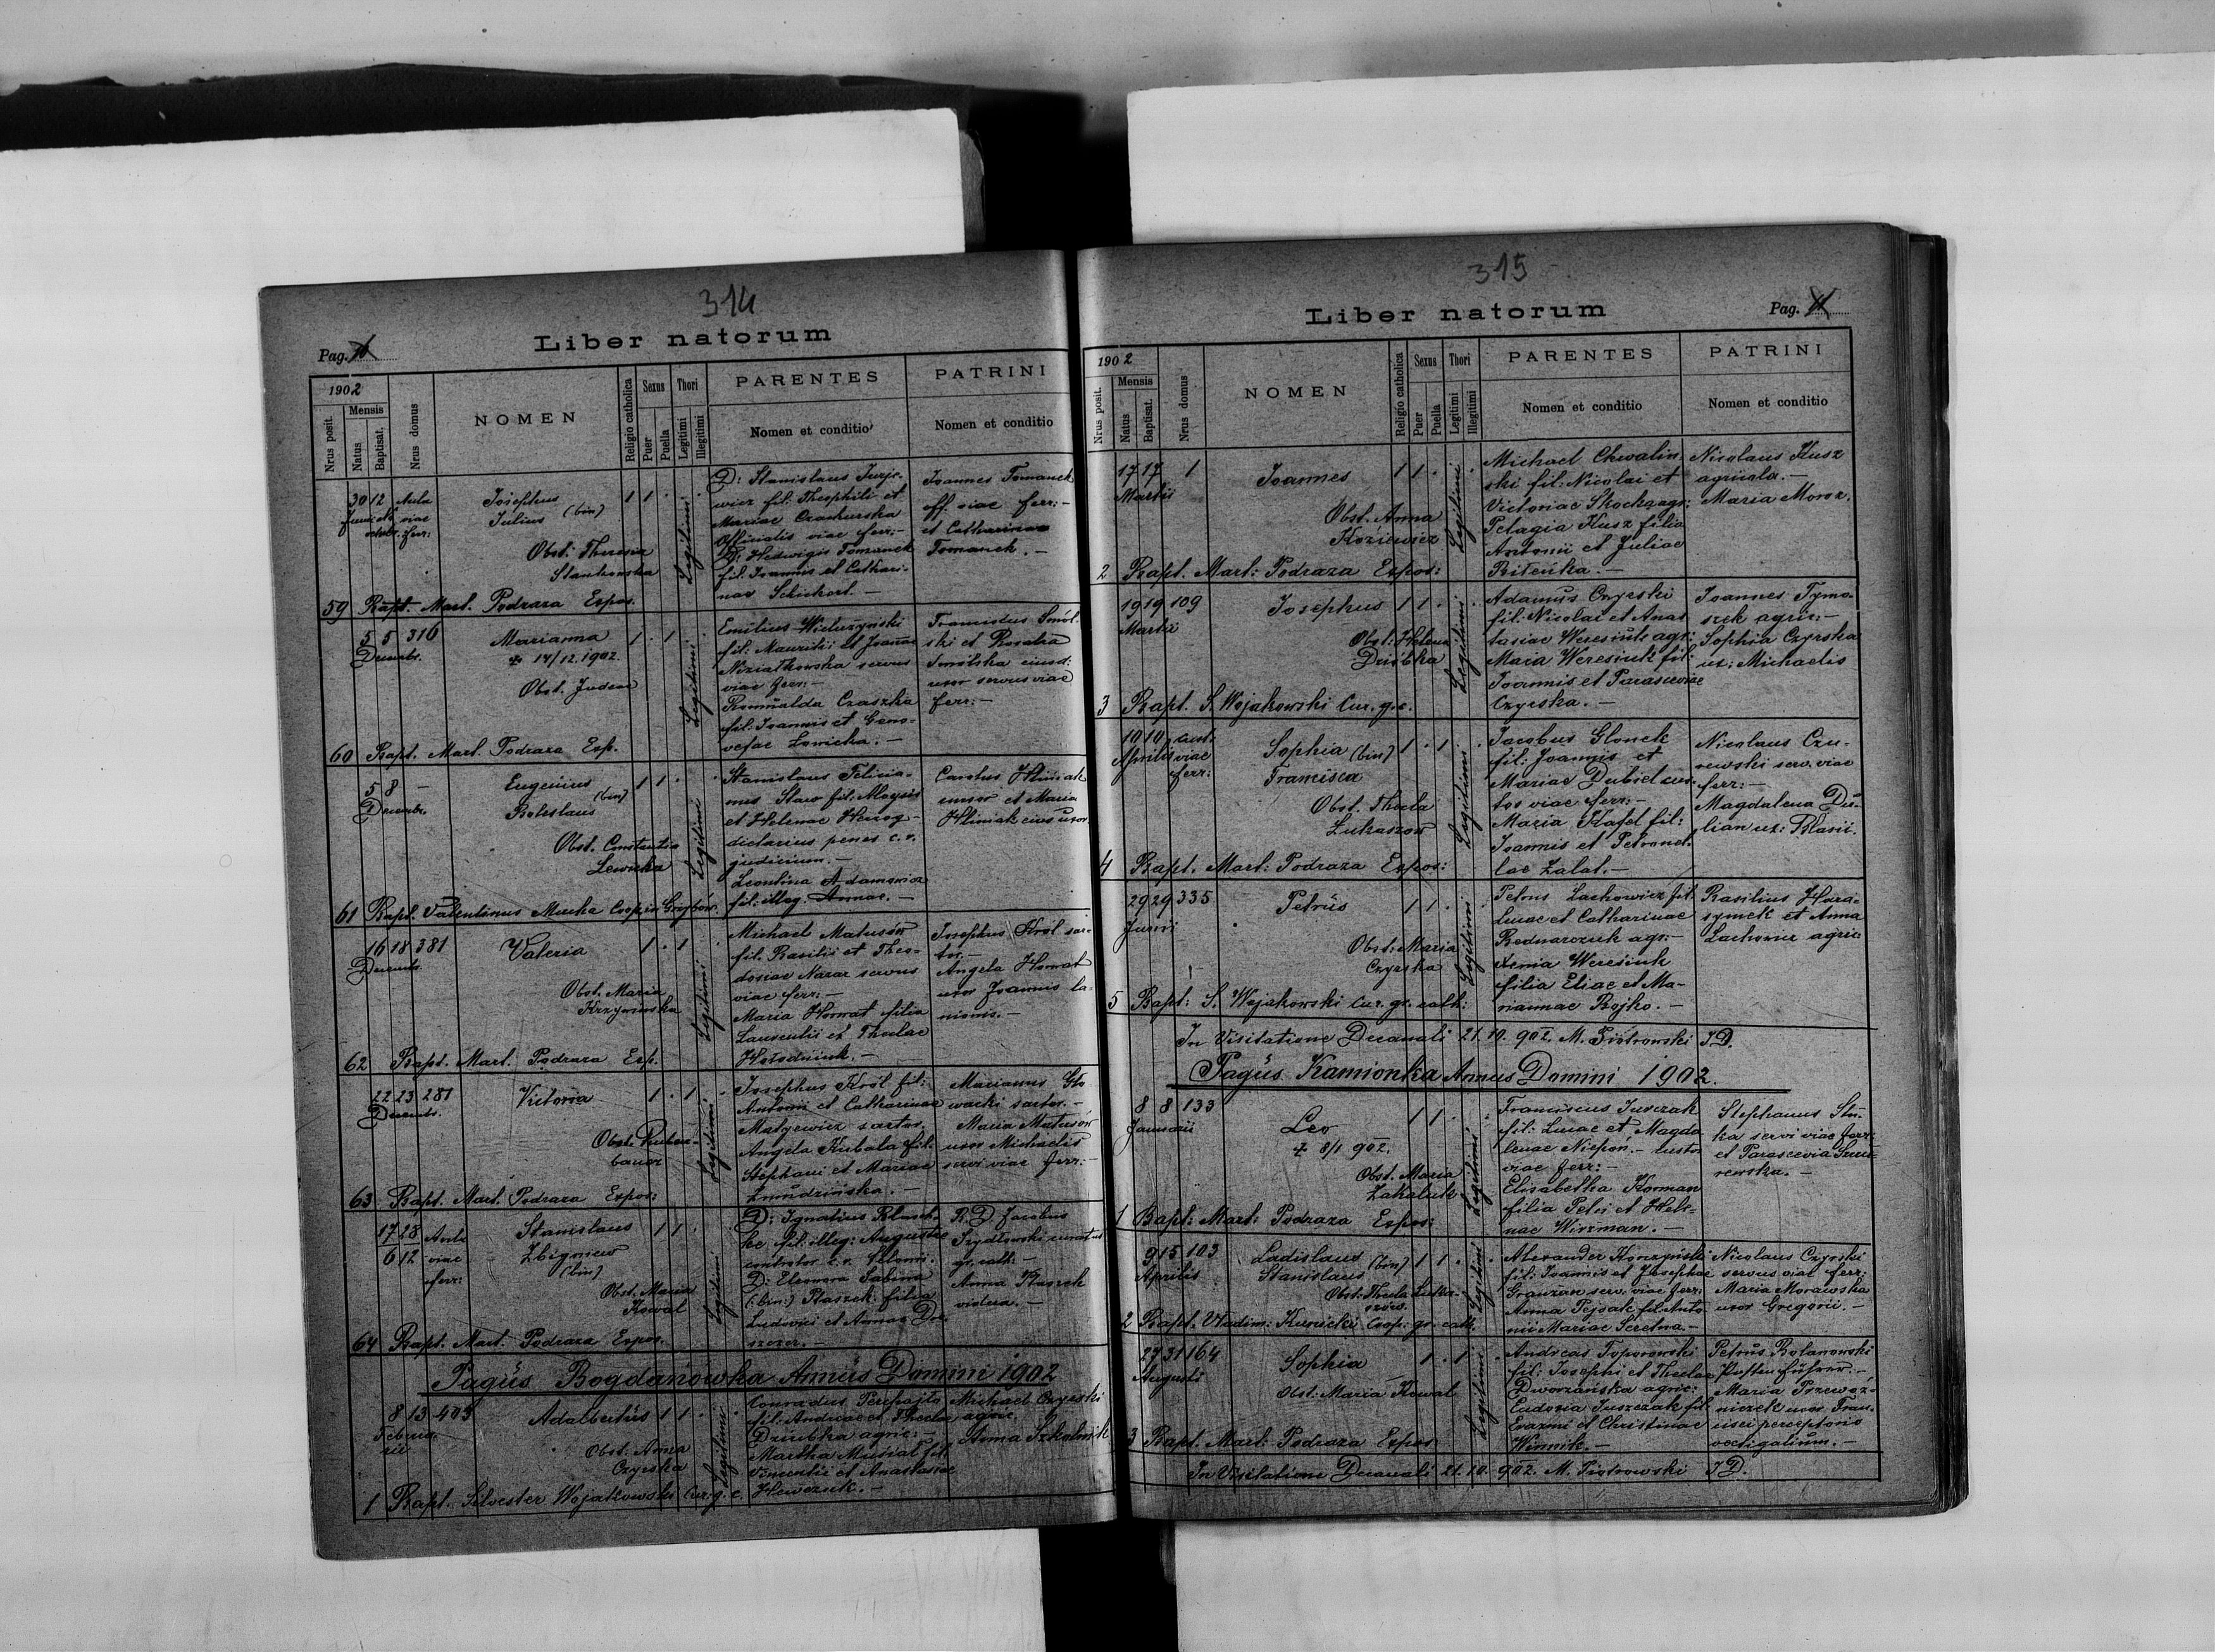 314
Liber natorum
Pag.
1902
Nrus posit.
Mensis
Natus
Baptisat.
Nrus domus
NOMEN
Religio catholica
Sexus
Puer
Puella
Thori
Legitimi
Illegitimi
PARENTES
Nomen et conditio
PATRINI
Nomen et conditio
30 12
Josephus
Julius (bin)
Obst. Theresia
Stankowska
1 1 .
Legitimi
D: Stanislaus Jurje-
wicz fil: Theophili et
Mariae
Officialis viae ferr: –
D: Hedwigis Tomanek
fil: Joannis et Cathari-
nae
Joannes Tomanek
off. viae ferr: –
et Catharina
Tomanek. –
59 Bapt. Mart. Podraza Expos.
5 5 316
Decembr.
Marianna
14/12. 1902.
Obst. Judea
1 . 1
Legitimi
Emilius Wieluzynski
fil: Mauritii et Joannae
Niziatkowska servus
viae ferr: –
Romualda Czaszka
fil: Joannis et Geno-
vefae Lonicka. –
Franciscus Smól-
ski et Rosalia
Smólska eiusd:
uxor servus viae
ferr: –
60 Bapt. Mart. Podraza Exp.
5 8 –
Decembr.
Eugenius
(bin)
Boleslaus
Obst. Constantia
Lewicka
1 1 .
Legitimi
Stanislaus Felicia-
nus Staw fil: Aloysii
et Helenae Herzog –
dietarius penes c. r.
judicium. –
Leontina Adamowicz
fil: illeg. Annae. –
Carolus Hliniak
et Maria
Hliniak eius uxor
61 Bapt. Valentinus Mucha Coop. in Grybów.
16 18 381
Decembr.
Valeria
Obst. Maria
Krzynowska
1 . 1
Legitimi
Michael Matusów
fil: Basilii et Theo-
dosiae Nazar servus
viae ferr: –
Maria Hornat filia
Laurentii et Theclae
Josephus Król sar-
tor. –
Angela Hornat
uxor Joannis la-
nionis. –
62 Bapt. Mart. Podraza Exp.
22 23 281
Decembr.
Victoria
Obst. Ruben-
bauer
1 . 1
Legitimi
Josephus Król fil:
Antonii et Catharinae
Matyewicz sartor.
Angela Kubala fil:
Stephani et Mariae
Żmudzińska. –
Marianus Gło-
wacki sartor. –
Maria Matusów
uxor Michaelis
servi viae ferr: –
63 Bapt. Mart. Podraza Expos:
17 28
6 12
viae
ferr:
Stanislaus
Zbigniew
(bin)
Obst. Maria
Kowal
1 1 .
Legitimi
D: Ignatius
fil: illeg: Augustae
D: Eleonora Sabina
(:bin:) Ptaszek filia
Ludovici et Annae
R. D. Jacobus
gr. cath:
Anna Ptaszek
vidua. –
64 Bapt. Mart. Podraza Expos.
Pagus Bogdanówka Annus Domini 1902
8 13 403
Februa-
rii
Adalbertus
Obst. Anna
Czyrska
1 1 .
Legitimi
Conradus Perepajło
fil: Andreae et Theclae
Dziubka agric: –
Martha Musiał fil:
Vincentii et Anastasiae
Hewczuk. –
Michael Czyrski
agric.
Anna Szkolnik
1 Bapt. Silvester Wojakowski Cur. g. c.
315
Liber natorum
Pag.
1902
Nrus posit.
Mensis
Natus
Baptisat.
Nrus domus
NOMEN
Religio catholica
Sexus
Puer
Puella
Thori
Legitimi
Illegitimi
PARENTES
Nomen et conditio
PATRINI
Nomen et conditio
17 17 1
Martii
Joannes
Obst. Anna
Koziewicz
1 1 .
Legitimi
Michael Chwalin-
ski fil: Nicolai et
Victoriae Skocka agr:
Pelagia Kusz filia
Antonii et Juliae
Biteńka. –
Nicolaus Kusz
agricola. –
Maria Moroz.
2 Bapt. Mart: Podraza Expos:
19 19 109
Martii
Josephus
Obst: Helena
Dziubka
1 1 .
Legitimi
Adamus Czyrski
fil: Nicolai et Anas-
tasiae Weresiuk agr:
Maria Weresiuk fil:
Joannis et Parasceviae
Czyrska. –
Joannes Tymo-
szek agric: –
Sophia Czyrska
ux: Michaelis
3 Bapt. S. Wojakowski Cur. g. c.
10 10 cust.
Aprilis viae
ferr:
Sophia (bin)
Francisca
Obst. Thecla
Lukaszow
1 . 1
Legitimi
Jacobus Glonek
fil: Joannis et
Mariae Dubiel cus-
tos viae ferr: –
Maria Kafel fil:
Joannis et Petronel-
lae Zalat. –
Nicolaus Czu-
rewski serv. viae
ferr: –
Magdalena Du-
lian ux: Blasii.
4 Bapt. Mart: Podraza Expos:
29 29 335
Junii
Petrus
Obst: Maria
Czyrska
1 1 .
Legitimi
Petrus Lachowicz fil.
Lucae et Catharinae
Bednarczuk agr. –
Xenia Weresiuk
filia Eliae et Ma-
riannae Bojko. –
Basilius Hara-
symek et Anna
Lachowicz agric:
5 Bapt: S. Wojakowski Cur. gr. cath:
In Visitatione Decanali 21. 10. 902. M. Piotrowski J. D.
Pagus Kamionka Annus Domini 1902.
8 8 133
Januarii
Leo
8/1 902.
Obst. Maria
Zakaluk
1 1 .
Legitimi
Franciscus Jurczak
fil: Lucae et Magda-
lenae Niepoń. – custos
viae ferr: –
Elisabetha Korman
filia Petri et Hele-
nae Wirzman. –
Stephanus
servi viae ferr:
et Parascevia
rewska. –
1 Bapt: Mart: Podraza Expos:
9 15 103
Aprilis
Ladislaus (bin)
Stanislaus
Obst: Thecla Luka-
szow.
1 1 .
Legitimi
Alexander Korzyński
fil: Joannis et Josephae
Granzan serv. viae ferr:
Anna Pejsak fil: Anto-
nii Mariae Seretna. –
Nicolaus Czyrski
servus viae ferr:
Maria Morawska
uxor Gregorii. –
2 Bapt. Vladim: Kunicki Coop. gr. cath.
27 31 164
Augusti
Sophia
Obst. Maria Kowal
1 . 1
Legitimi
Andreas Toporowski
fil: Josephi et Theclae
Dworzańska agric:
Eudoxia Juszczak fil.
Erazmi et Christinae
Winnik. –
Petrus Bolanowski
Partieführer. –
Maria Przewoź-
niczek uxor Fran-
cisci perceptoris
vectigalium. –
3 Bapt. Mart: Podraza Expos
In Visitatione Decanali 21. 10. 902. M. Piotrowski J D.